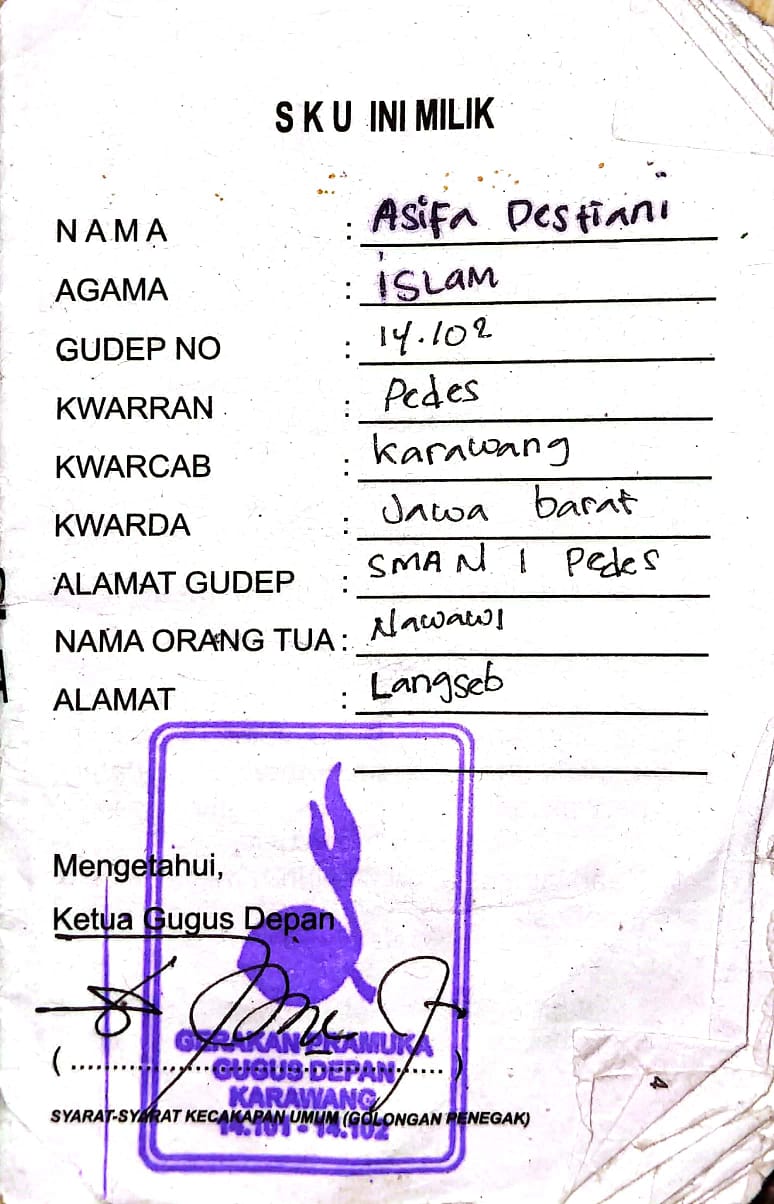 SKU INI MILIK
NAMA : Asifa Destiani
AGAMA : islam
GUDEP NO : 14.102
KWARRAN : Pedes
KWARCAB : Karawang
KWARDA : Jawa barat
ALAMAT GUDEP : SMAN 1 Pedes
NAMA ORANG TUA : Nawawi
ALAMAT : Langseb
Mengetahui,
Ketua Gugus Depan
GERAKAN PRAMUKA
(........................................)
GUGUS DEPAN
KARAWANG
SYARAT-SYARAT KECAKAPAN UMUM (GOLONGAN PENEGAK)
14.101 - 14.102
4